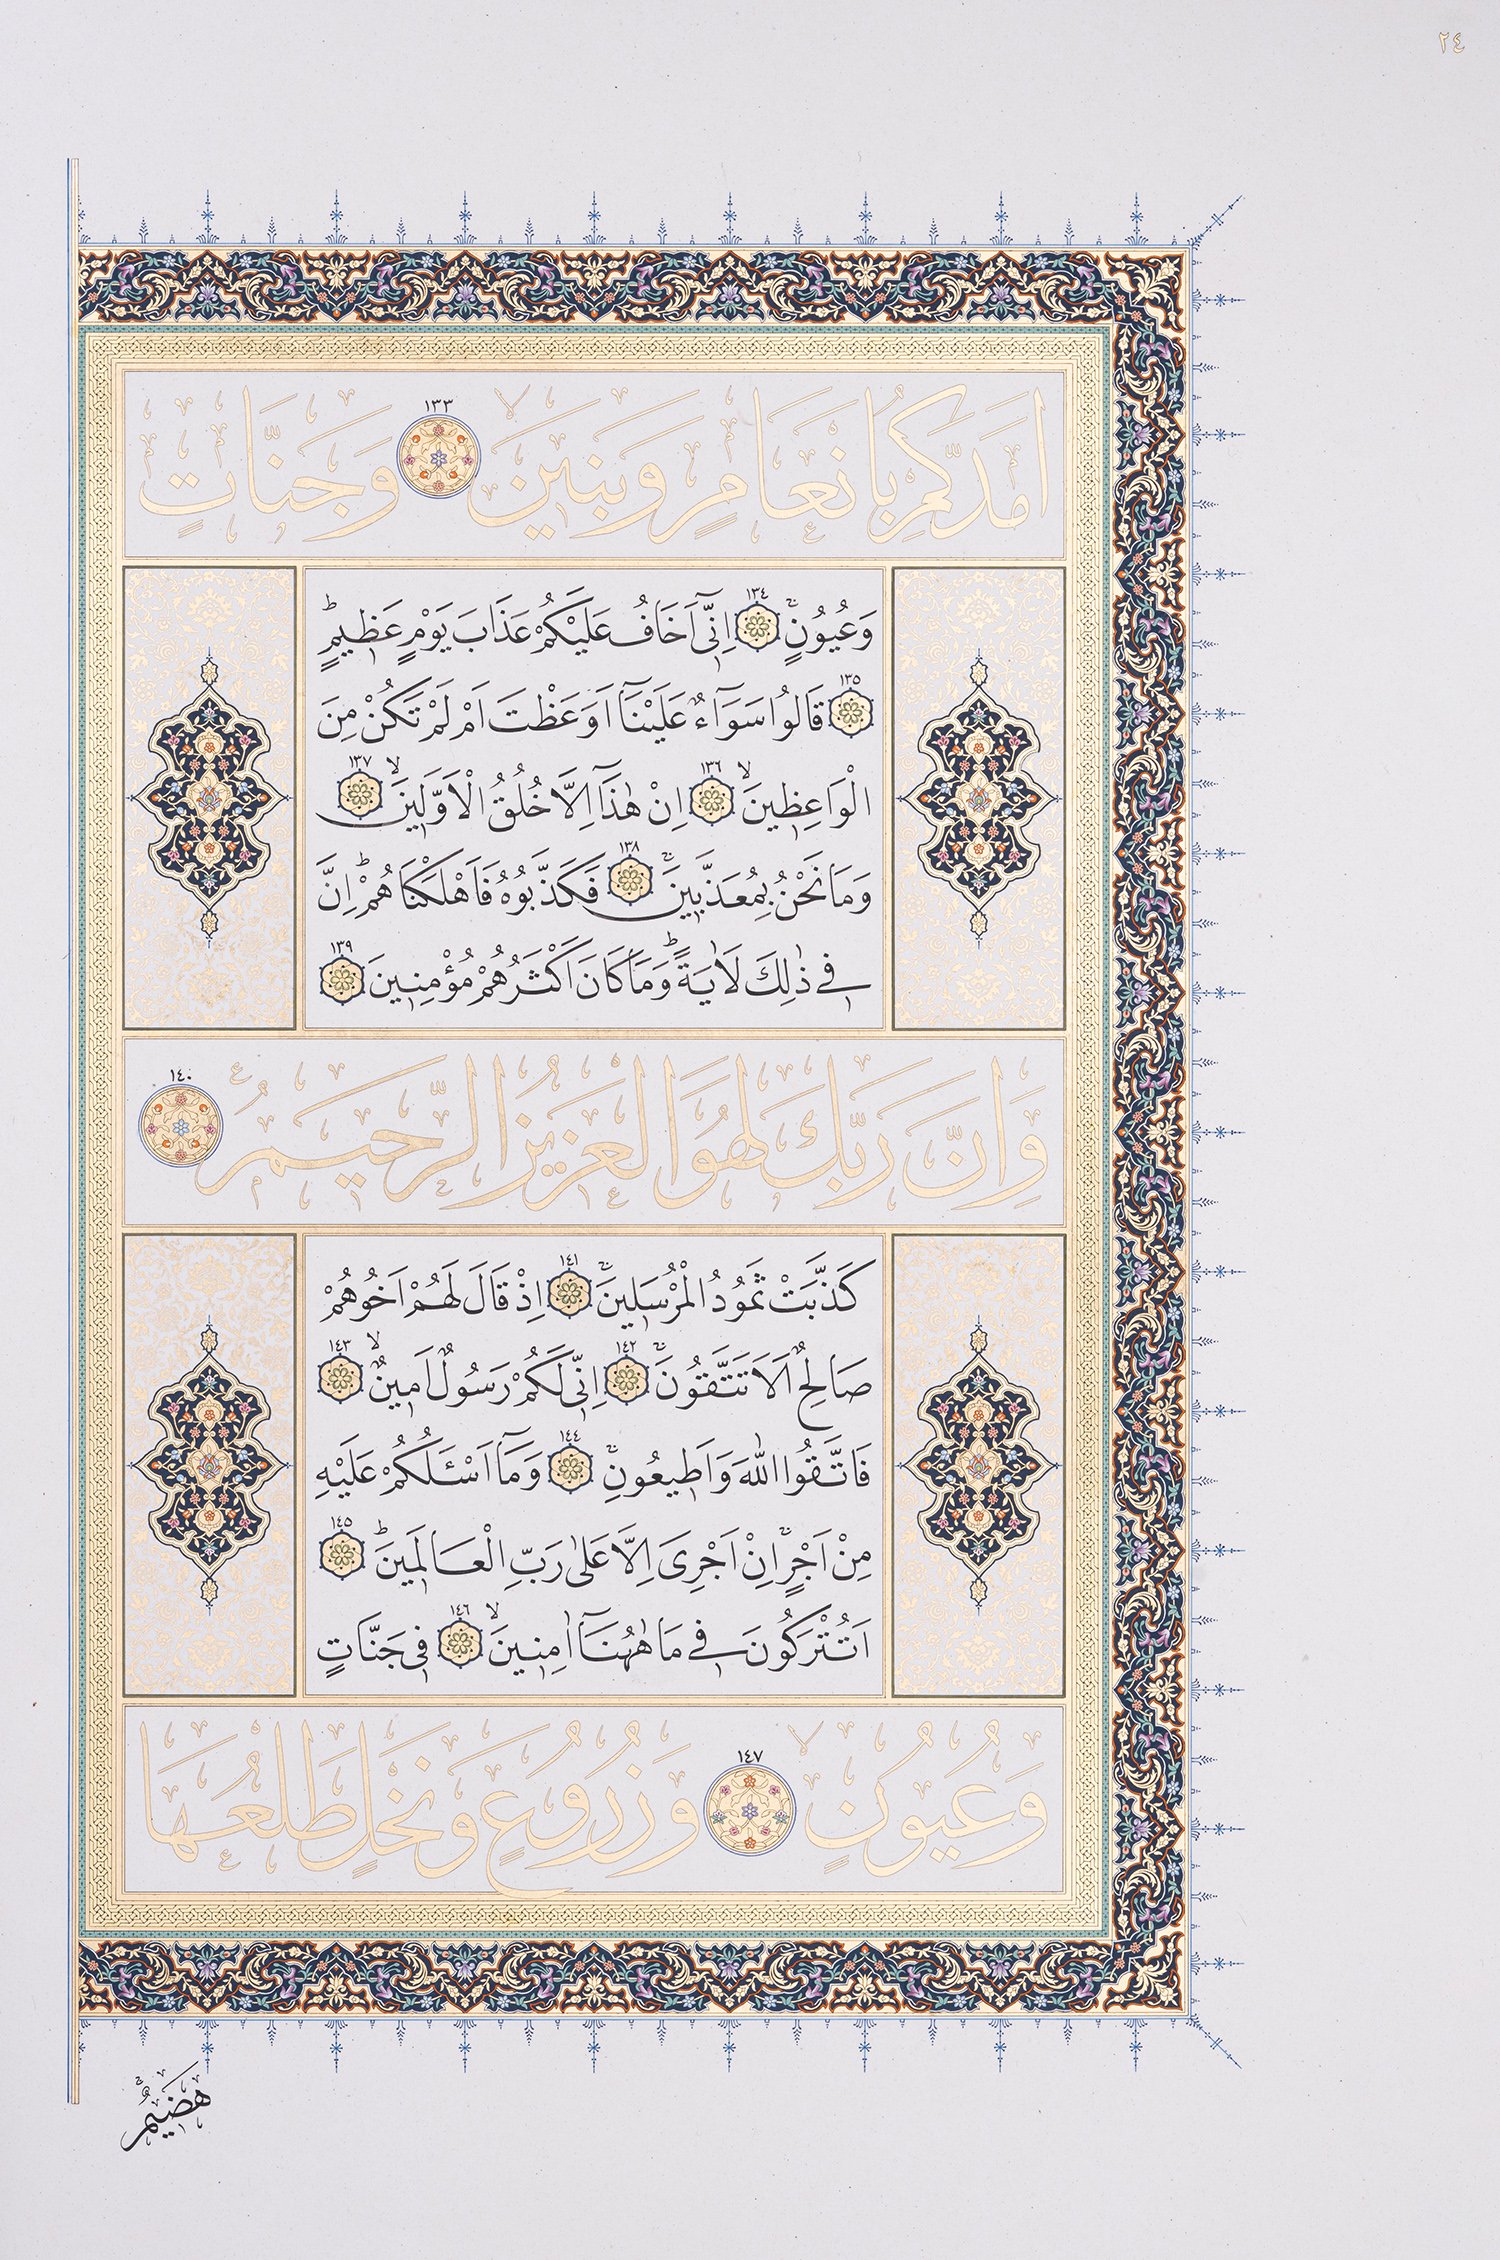 ٢٤
اَمَدَّكُمْ بِاَنْعَامٍ وَبَن۪ينَ ١٣٣ وَجَنَّاتٍ
وَعُيُونٍۚ ١٣٤ اِنّ۪ٓي اَخَافُ عَلَيْكُمْ عَذَابَ يَوْمٍ عَظ۪يمٍۜ
١٣٥ قَالُوا سَوَٓاءٌ عَلَيْنَٓا اَوَعَظْتَ اَمْ لَمْ تَكُنْ مِنَ
الْوَاعِظ۪ينَۙ ١٣٦ اِنْ هٰذَٓا اِلَّا خُلُقُ الْاَوَّل۪ينَۙ ١٣٧
وَمَا نَحْنُ بِمُعَذَّب۪ينَۚ ١٣٨ فَكَذَّبُوهُ فَاَهْلَكْنَاهُمْۜ اِنَّ
ف۪ي ذٰلِكَ لَاٰيَةًۜ وَمَا كَانَ اَكْثَرُهُمْ مُؤْمِن۪ينَ ١٣٩
وَاِنَّ رَبَّكَ لَهُوَ الْعَز۪يزُ الرَّح۪يمُ ١٤٠
كَذَّبَتْ ثَمُودُ الْمُرْسَل۪ينَۚ ١٤١ اِذْ قَالَ لَهُمْ اَخُوهُمْ
صَالِحٌ اَلَا تَتَّقُونَۚ ١٤٢ اِنّ۪ي لَكُمْ رَسُولٌ اَم۪ينٌۙ ١٤٣
فَاتَّقُوا اللّٰهَ وَاَط۪يعُونِۚ ١٤٤ وَمَٓا اَسْـَٔلُكُمْ عَلَيْهِ
مِنْ اَجْرٍۚ اِنْ اَجْرِيَ اِلَّا عَلٰى رَبِّ الْعَالَم۪ينَۜ ١٤٥
اَتُتْرَكُونَ ف۪ي مَا هٰهُنَٓا اٰمِن۪ينَۙ ١٤٦ ف۪ي جَنَّاتٍ
وَعُيُونٍۙ ١٤٧ وَزُرُوعٍ وَنَخْلٍ طَلْعُهَا
هَض۪يمٌۚ